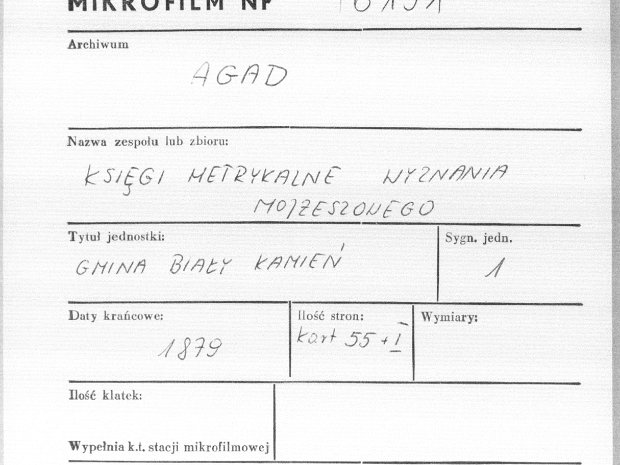 MIKROFILM Nr
Archiwum
AGAD
Nazwa zespołu lub zbioru:
KSIĘGI METRYKALNE WYZNANIA
MOJŻESZOWEGO
Tytuł jednostki:
GMINA BIAŁY KAMIEŃ
Sygn. jedn.
1
Daty krańcowe:
1879
Ilość stron:
kart 55 + I
Wymiary:
Ilość klatek:
Wypełnia k.t. stacji mikrofilmowej